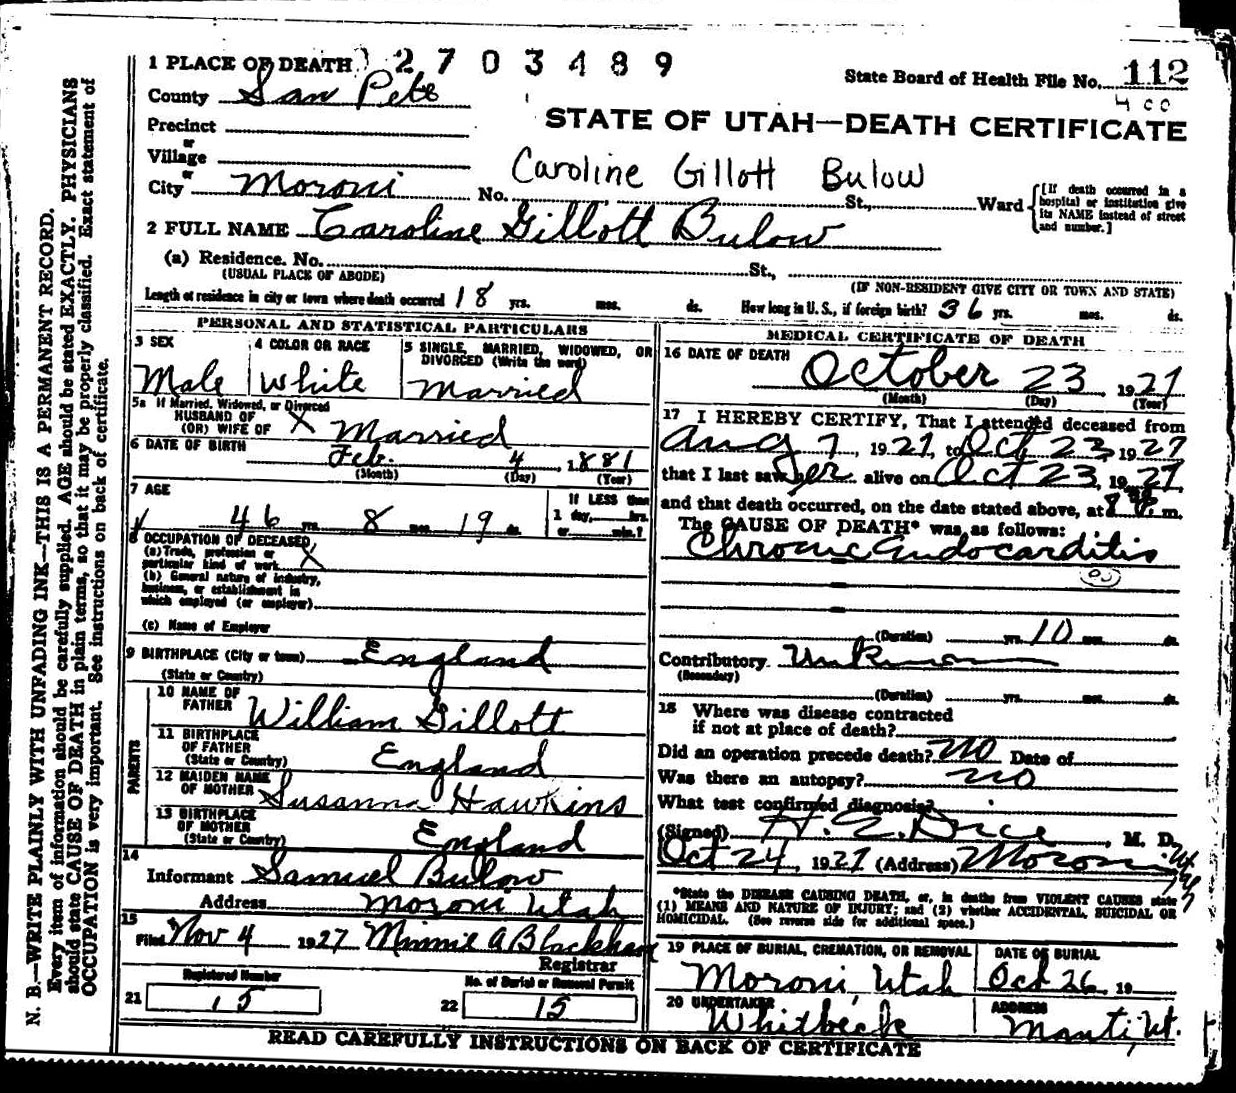 1 PLACE OF DEATH 2703489
State Board of Health File No. 112
400
County San Pete
STATE OF UTAH—DEATH CERTIFICATE
Precinct
or
Village
or
City Moroni No. St., Ward [If death occurred in a hospital or institution give its NAME instead of street and number.]
Caroline Gillott Bulow
2 FULL NAME Caroline Gillott Bulow
(a) Residence. No. St.,
(USUAL PLACE OF ABODE) (IF NON-RESIDENT GIVE CITY OR TOWN AND STATE)
Length of residence in city or town where death occurred 18 yrs. mos. ds. How long in U. S., if foreign birth? 36 yrs. mos. ds.
PERSONAL AND STATISTICAL PARTICULARS
3 SEX
Male
4 COLOR OR RACE
White
5 SINGLE, MARRIED, WIDOWED, OR
DIVORCED (Write the word)
Married
5a If Married, Widowed, or Divorced
HUSBAND OF
(OR) WIFE OF X Married
6 DATE OF BIRTH Feb. 4, 1881
(Month) (Day) (Year)
7 AGE
46 yrs. 8 mos. 19 ds.
If LESS than
1 day, hrs.
or min.?
8 OCCUPATION OF DECEASED
(a) Trade, profession or
particular kind of work X
(b) General nature of industry,
business, or establishment in
which employed (or employer)
(c) Name of Employer
9 BIRTHPLACE (City or town) England
(State or Country)
PARENTS
10 NAME OF
FATHER William Gillott
11 BIRTHPLACE
OF FATHER
(State or Country) England
12 MAIDEN NAME
OF MOTHER Susanna Hawkins
13 BIRTHPLACE
OF MOTHER
(State or Country) England
14
Informant Samuel Bulow
Address Moroni Utah
15
Filed Nov 4 1927 Minnie A Blackham
Registrar
Registered Number
21 15
No. of Burial or Removal Permit
22 15
MEDICAL CERTIFICATE OF DEATH
16 DATE OF DEATH October 23, 1927
(Month) (Day) (Year)
17 I HEREBY CERTIFY, That I attended deceased from
Aug 7, 1927, to Oct 23, 1927
that I last saw her alive on Oct 23, 1927
and that death occurred, on the date stated above, at 8 m.
The CAUSE OF DEATH* was as follows:
Chronic Endocarditis
90
(Duration) yrs. 10 mos. ds.
Contributory Unknown
(Secondary)
(Duration) yrs. mos. ds.
18 Where was disease contracted
if not at place of death?
Did an operation precede death? no Date of
Was there an autopsy? no
What test confirmed diagnosis?
(Signed) M. D.
Oct 24, 1927 (Address) Moroni Ut
*State the DISEASE CAUSING DEATH, or, in deaths from VIOLENT CAUSES state
(1) MEANS AND NATURE OF INJURY; and (2) whether ACCIDENTAL, SUICIDAL OR
HOMICIDAL. (See reverse side for additional space.)
19 PLACE OF BURIAL, CREMATION, OR REMOVAL
Moroni, Utah
DATE OF BURIAL
Oct 26, 19
20 UNDERTAKER
Whitbeck
ADDRESS
Manti, Ut.
READ CAREFULLY INSTRUCTIONS ON BACK OF CERTIFICATE
N. B.—WRITE PLAINLY WITH UNFADING INK—THIS IS A PERMANENT RECORD.
Every item of information should be carefully supplied. AGE should be stated EXACTLY. PHYSICIANS
should state CAUSE OF DEATH in plain terms, so that it may be properly classified. Exact statement of
OCCUPATION is very important. See instructions on back of certificate.